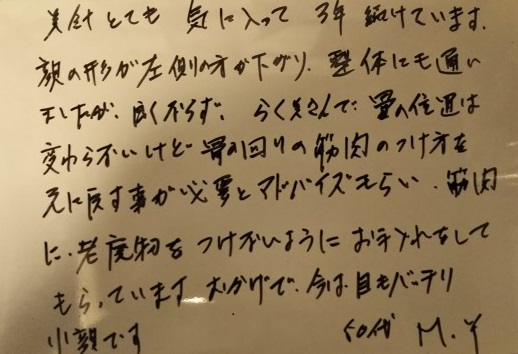 美針とても 気に入って 3年 続けています。
顔の形が左側の方が下がり、整体にも通い
ましたが、良くならず。らくえさんで、骨の位置は
変わらないけど 骨の回りの筋肉のつけ方を
元に戻す事が必要とアドバイスもらい、筋肉
に、老廃物を つけないように お手入れをして
もらっています。おかげで、今は目もパッチリ
小顔です 50代 M.Y